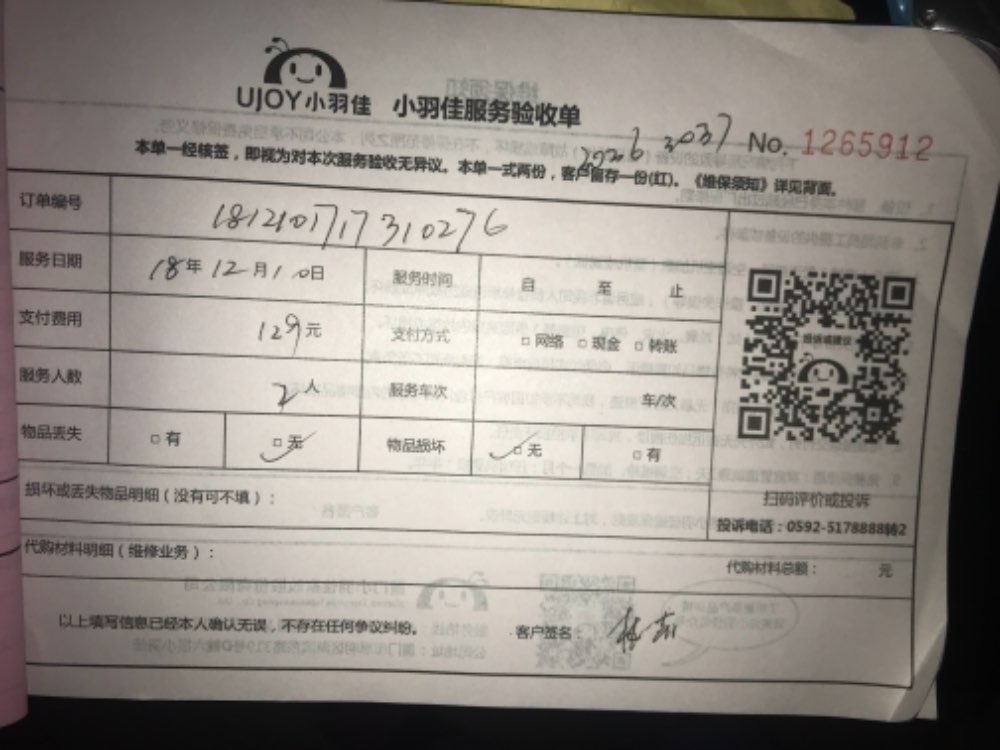 UJOY小羽佳 小羽佳服务验收单
No. 1265912
本单一经核签，即视为对本次服务验收无异议。本单一式两份，客户留存一份(红)。《维保须知》详见背面。
订单编号 181210171731027６
服务日期 18年12月10日 服务时间 自 至 止
支付费用 129元 支付方式 □网络 □现金 □转账
服务人数 2人 服务车次 车/次
物品丢失 □有 □无 ✓ 物品损坏 □无 ✓ □有
损坏或丢失物品明细（没有可不填）：
扫码评价或投诉
投诉电话：0592-5178888转2
代购材料明细（维修业务）：
代购材料总额： 元
以上填写信息已经本人确认无误，不存在任何争议纠纷。 客户签名：